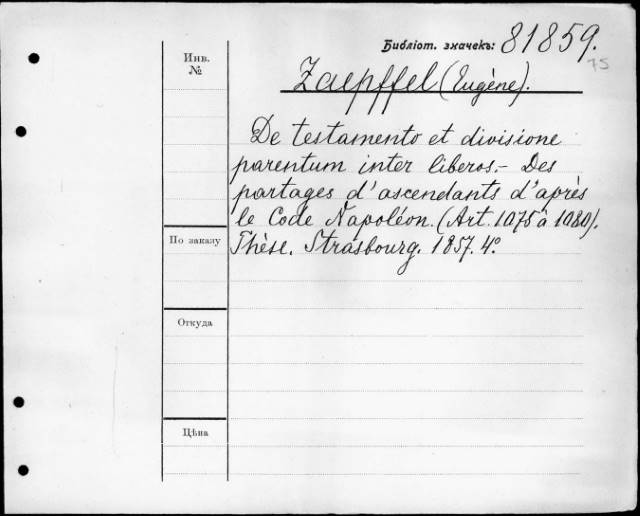 Библіот. значекъ: 81859.
75
Инв.
№
Zaepffel (Eugène).
De testamento et divisione
parentum inter liberos.- Des
partages d'ascendants d'après
le Code Napoléon. (Art. 1075 à 1080).
Thèse. Strasbourg. 1857. 4º
По заказу
Откуда
Цѣна